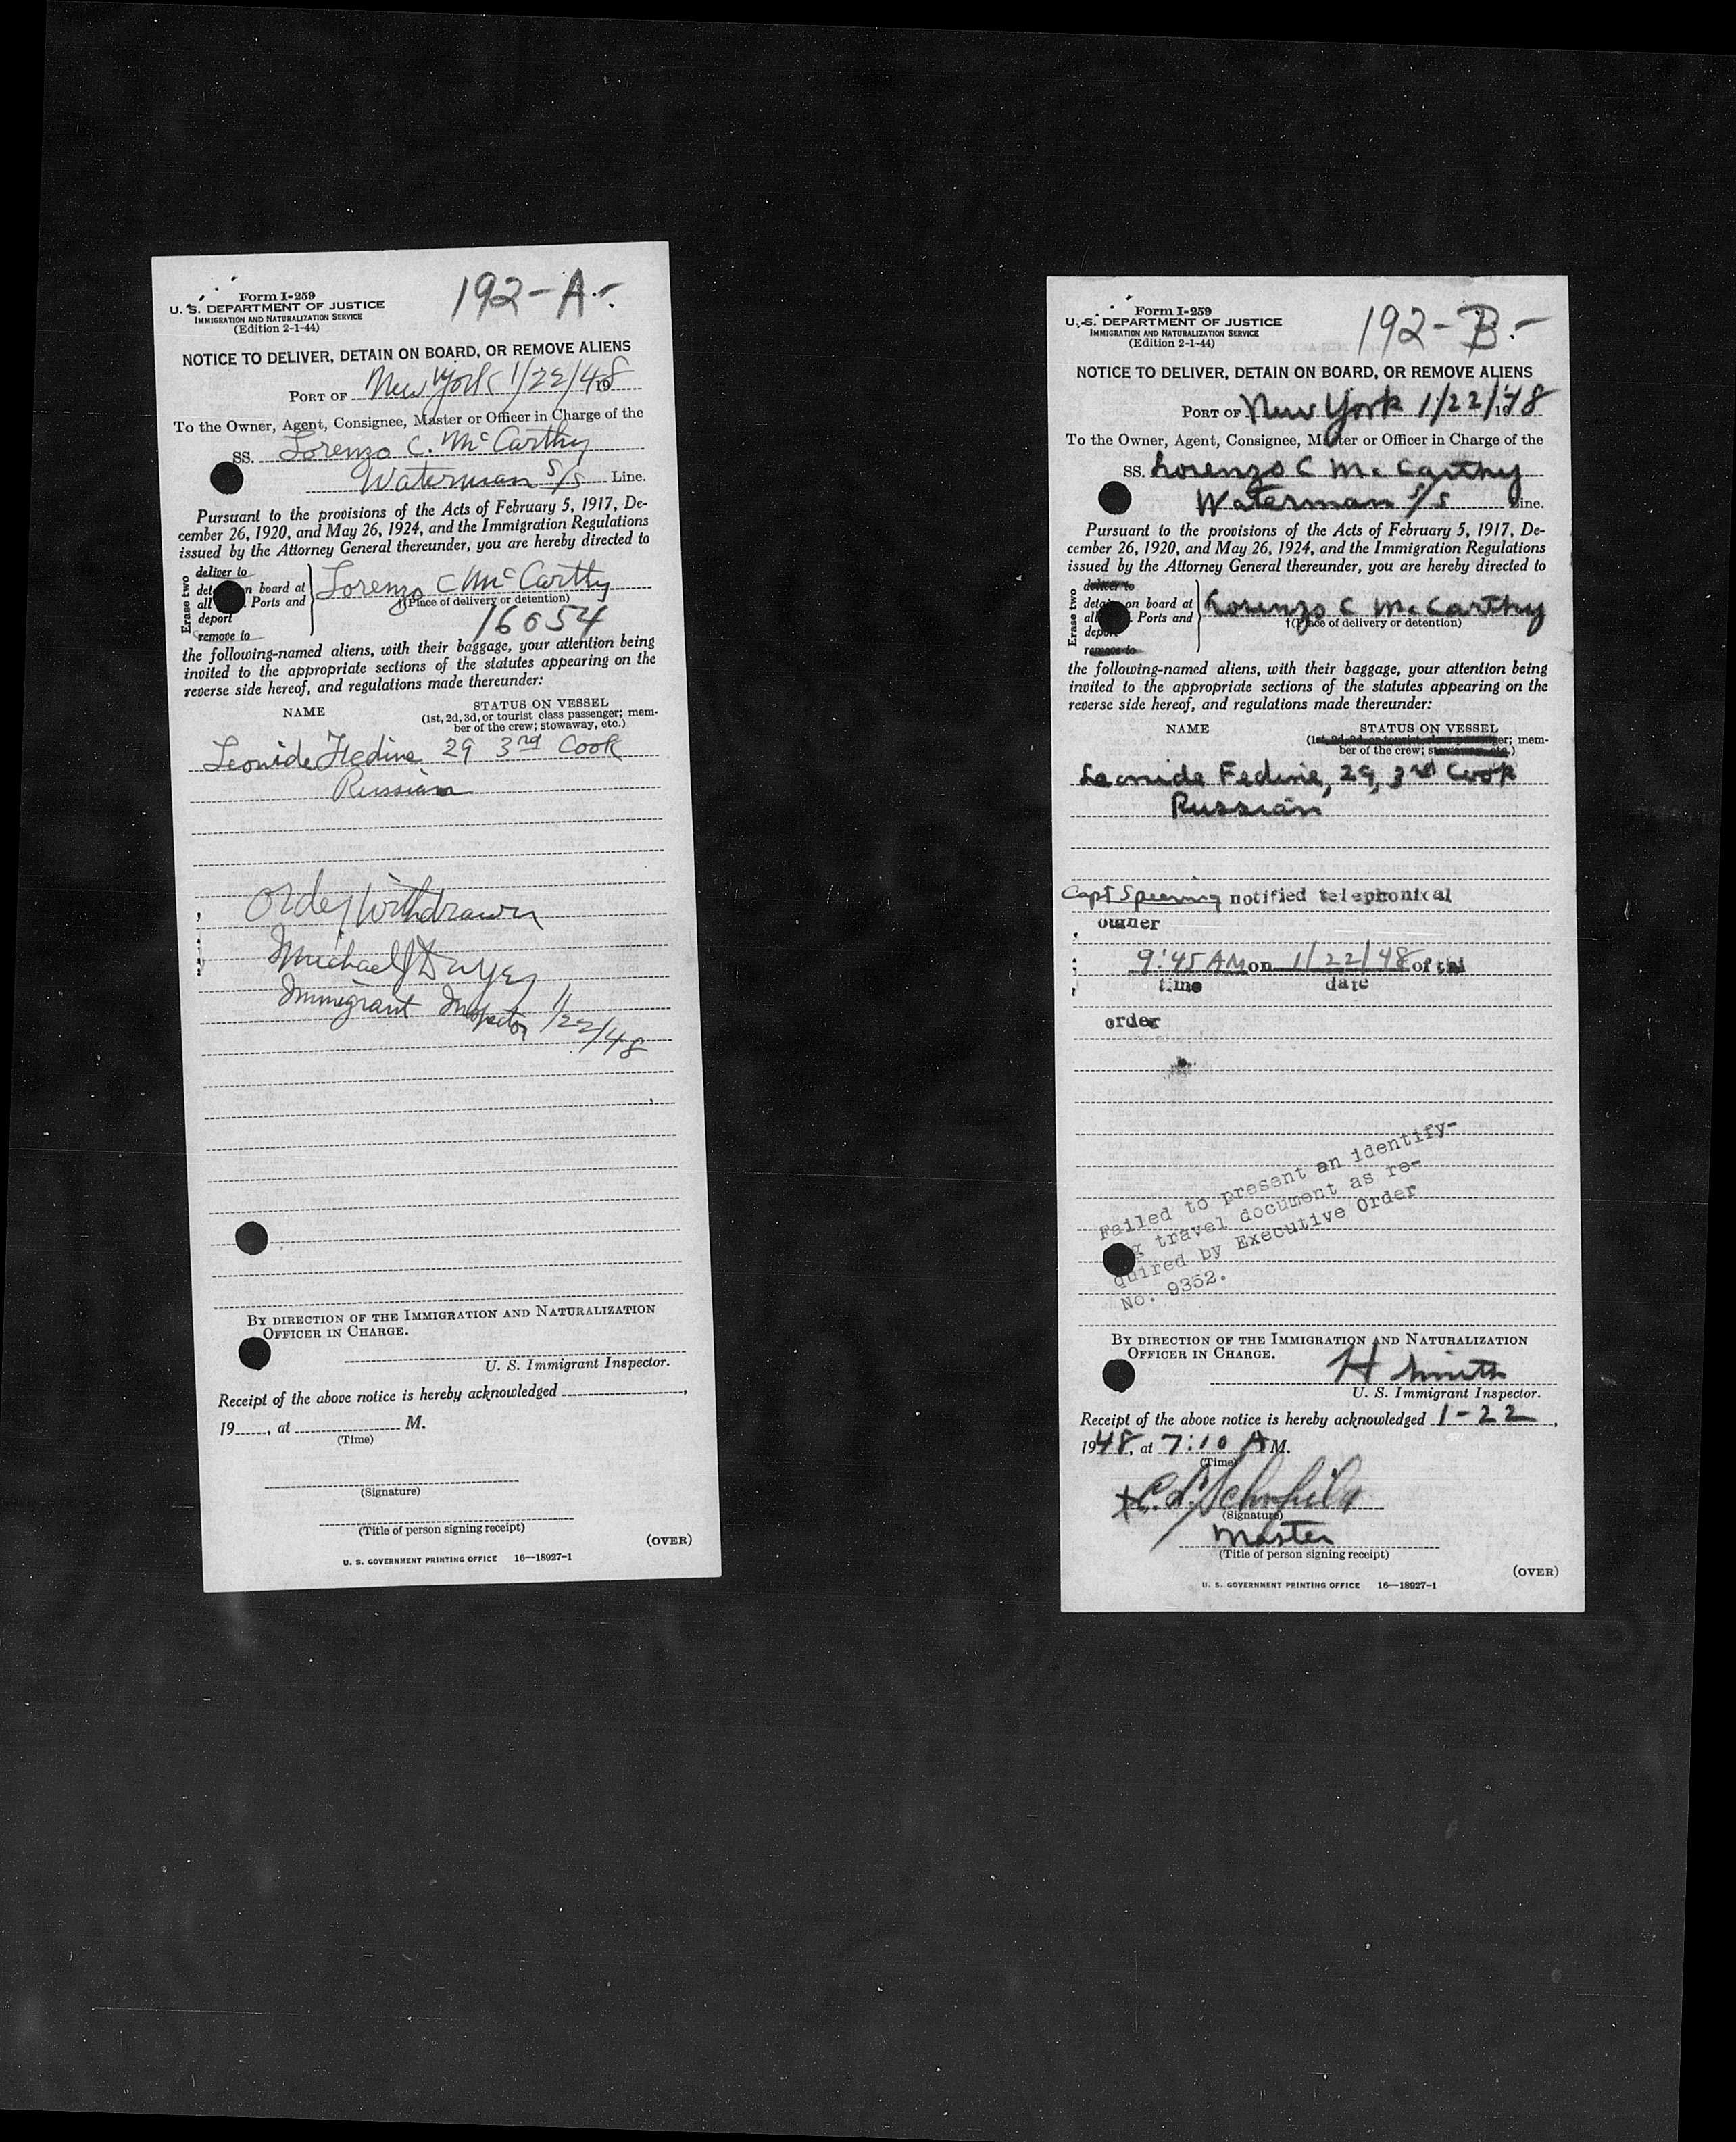 192-A.-
Form I-259
U. S. DEPARTMENT OF JUSTICE
IMMIGRATION AND NATURALIZATION SERVICE
(Edition 2-1-44)
NOTICE TO DELIVER, DETAIN ON BOARD, OR REMOVE ALIENS
PORT OF New York 1/22/48 19
To the Owner, Agent, Consignee, Master or Officer in Charge of the
SS. Lorenzo C. McCarthy
Waterman S/S Line.
Pursuant to the provisions of the Acts of February 5, 1917, De-
cember 26, 1920, and May 26, 1924, and the Immigration Regulations
issued by the Attorney General thereunder, you are hereby directed to
Erase two
deliver to
det n board at
all Ports and
deport
remove to
Lorenzo C McCarthy
†(Place of delivery or detention)
16054
the following-named aliens, with their baggage, your attention being
invited to the appropriate sections of the statutes appearing on the
reverse side hereof, and regulations made thereunder:
NAME STATUS ON VESSEL
(1st, 2d, 3d, or tourist class passenger; mem-
ber of the crew; stowaway, etc.)
Leonide Fedine 29 3rd Cook
Russian
Order Withdrawn
Michael J
Immigrant Inspector 1/22/48
BY DIRECTION OF THE IMMIGRATION AND NATURALIZATION
OFFICER IN CHARGE.
U. S. Immigrant Inspector.
Receipt of the above notice is hereby acknowledged ,
19 , at M.
(Time)
(Signature)
(Title of person signing receipt)
(OVER)
U. S. GOVERNMENT PRINTING OFFICE 16—18927-1
192-B.-
Form I-259
U. S. DEPARTMENT OF JUSTICE
IMMIGRATION AND NATURALIZATION SERVICE
(Edition 2-1-44)
NOTICE TO DELIVER, DETAIN ON BOARD, OR REMOVE ALIENS
PORT OF New York 1/22/48 19
To the Owner, Agent, Consignee, Master or Officer in Charge of the
SS. Lorenzo C McCarthy
Waterman S/S Line.
Pursuant to the provisions of the Acts of February 5, 1917, De-
cember 26, 1920, and May 26, 1924, and the Immigration Regulations
issued by the Attorney General thereunder, you are hereby directed to
Erase two
deliver to
detain on board at
all Ports and
deport
remove to
Lorenzo C McCarthy
†(Place of delivery or detention)
the following-named aliens, with their baggage, your attention being
invited to the appropriate sections of the statutes appearing on the
reverse side hereof, and regulations made thereunder:
NAME STATUS ON VESSEL
(1st, 2d, 3d, or tourist class passenger; mem-
ber of the crew; stowaway, etc.)
Leonide Fedine, 29, 3rd Cook
Russian
Capt Speering notified telephonical
owner
9:45 AM on 1/22/48 of thi
time date
order
Failed to present an identify-
g travel document as re-
quired by Executive Order
No. 9352.
BY DIRECTION OF THE IMMIGRATION AND NATURALIZATION
OFFICER IN CHARGE.
H Smith
U. S. Immigrant Inspector.
Receipt of the above notice is hereby acknowledged 1-22,
1948, at 7:10 A M.
(Time)
(Signature)
Master
(Title of person signing receipt)
(OVER)
U. S. GOVERNMENT PRINTING OFFICE 16—18927-1